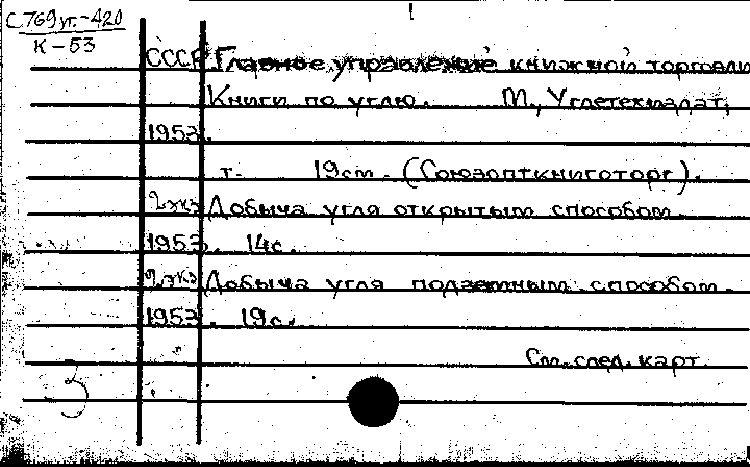 I
С 769 уг.-420
К-53
СССР Главное управление книжной торговли
Книги по углю. М., Углетехиздат,
1953.
т. 19см. (Союзопткниготорг).
2экз Добыча угля открытым способом.
1953. 14с.
2экз Добыча угля подземным способом.
1953. 19с.
См. след. карт.
3